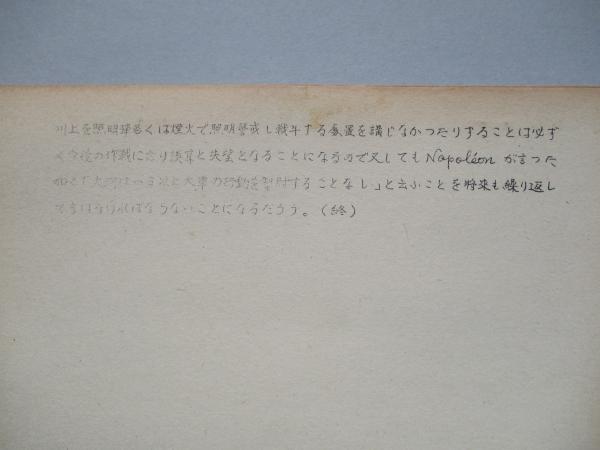 川上を照明弾若くは燈火で照明警戒し戦斗する處置を講じなかつたりすることは必ず
や今後の作戦に於り誤算と失望となることになるので又しても Napoléon が言つた
如と「大河は 大軍の行動を掣肘することなし」と云ふことを将来も繰り返し
て言はなければならないことになるだろう。(終)